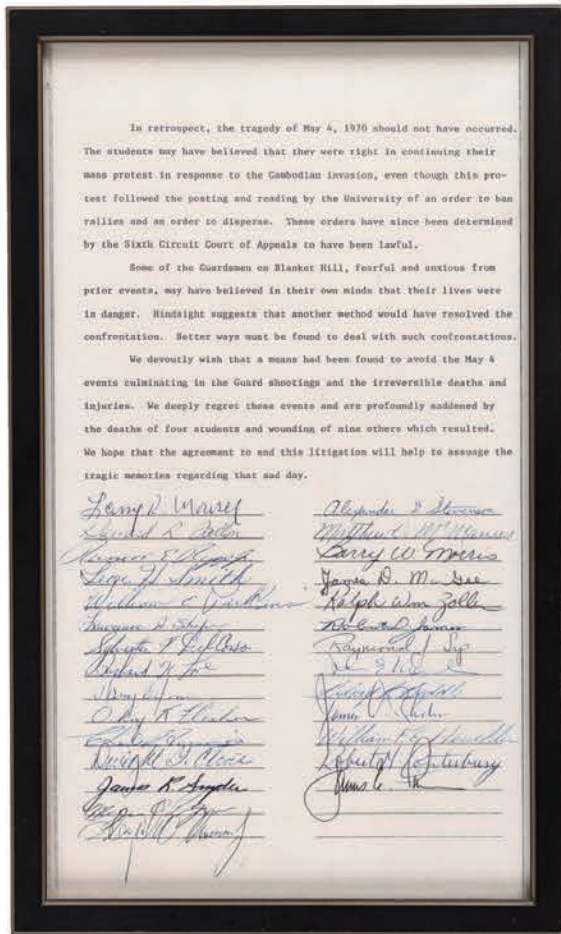 In retrospect, the tragedy of May 4, 1970 should not have occurred.
The students may have believed that they were right in continuing their
mass protest in response to the Cambodian invasion, even though this pro-
test followed the posting and reading by the University of an order to ban
rallies and an order to disperse. These orders have since been determined
by the Sixth Circuit Court of Appeals to have been lawful.
Some of the Guardsmen on Blanket Hill, fearful and anxious from
prior events, may have believed in their own minds that their lives were
in danger. Hindsight suggests that another method would have resolved the
confrontation. Better ways must be found to deal with such confrontations.
We devoutly wish that a means had been found to avoid the May 4
events culminating in the Guard shootings and the irreversible deaths and
injuries. We deeply regret those events and are profoundly saddened by
the deaths of four students and wounding of nine others which resulted.
We hope that the agreement to end this litigation will help to assuage the
tragic memories regarding that sad day.
Leon H Smith
William E Perkins
James R Snyder
Alexander D Stevenson
Matthew J McManus
Barry W Morris
James D. McGee
Ralph Wm Zoller
Robert D James
Raymond J
Robert Canterbury